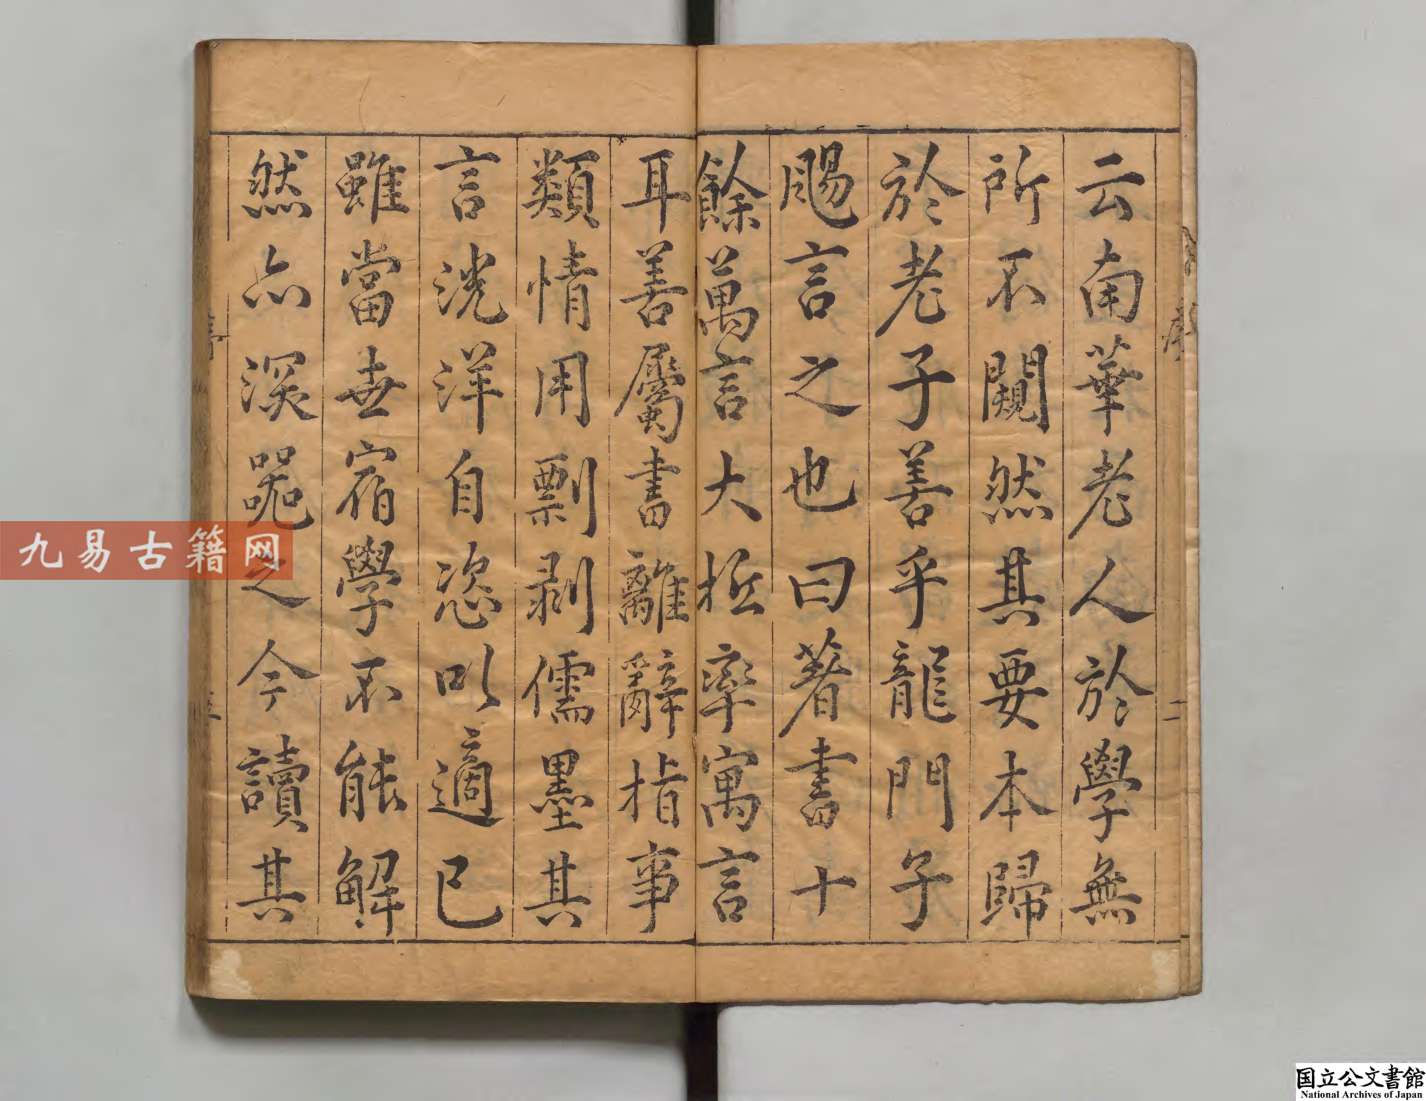 云南華老人於學無
所不闚然其要本歸
於老子善乎龍門子
颺言之也曰著書十
餘萬言大抵率寓言
耳善屬書離辭指事
類情用剽剥儒墨其
言洸洋自恣以適已
雖當世宿學不能解
然亦深之今讀其
九易古籍网
国立公文書館
National Archives of Japan